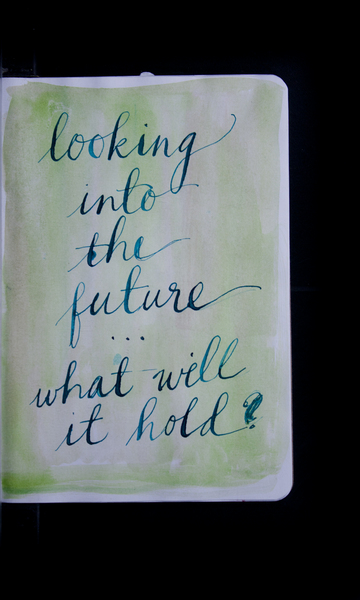 looking
into
the
future
...
what will
it hold?